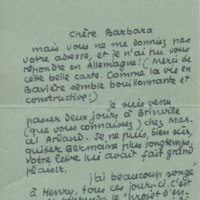 Chère Barbara
mais vous ne me donniez pas
votre adresse, et je n'ai pu vous
répondre en Allemagne! (Merci de
cette belle carte. Comme la vie en
Bavière semble bouillonnante et
constructive!)
je suis venu
passer deux jours à
(que vous connaissez) chez Mar-
cel Arland. Je ne puis, bien sûr,
quitter Germaine plus longtemps.
Votre lettre lui avait fait grand
plaisir.
j'ai beaucoup songé
à Henry, tous ces jour-ci. C'est